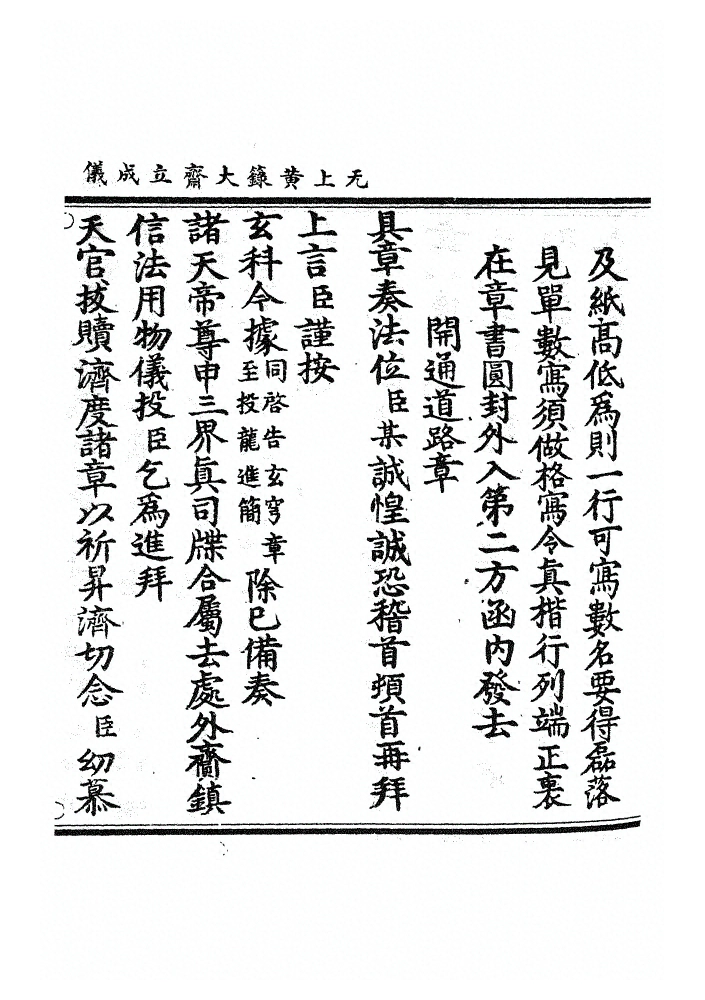 无上黃籙大齋立成儀
及紙高低爲則一行可寫數名要得磊落
見單數寫須做格寫令眞揩行列端正裹
在章書圓封外入第二方函內發去
開通道路章
具章奏法位臣某誠惶誠恐稽首頓首再拜
上言臣謹按
玄科今據同啓告玄穹章至投龍進簡除已備奏
諸天帝尊申三界眞司牒合屬去處外齎鎮
信法用物儀投臣乞爲進拜
天官拔贖濟度諸章以祈昇濟切念臣幼慕